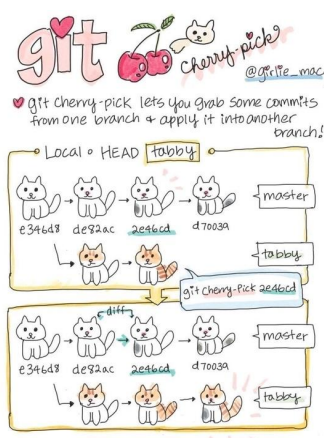 git cherry-pick
@girlie_mac
git cherry-pick lets you grab some commits
from one branch & apply it into another
branch!
Local ∘ HEAD tabby
master
e346d8 de82ac 2e46cd d70039
tabby
git cherry-pick 2e46cd
diff
master
e346d8 de82ac 2e46cd d70039
tabby